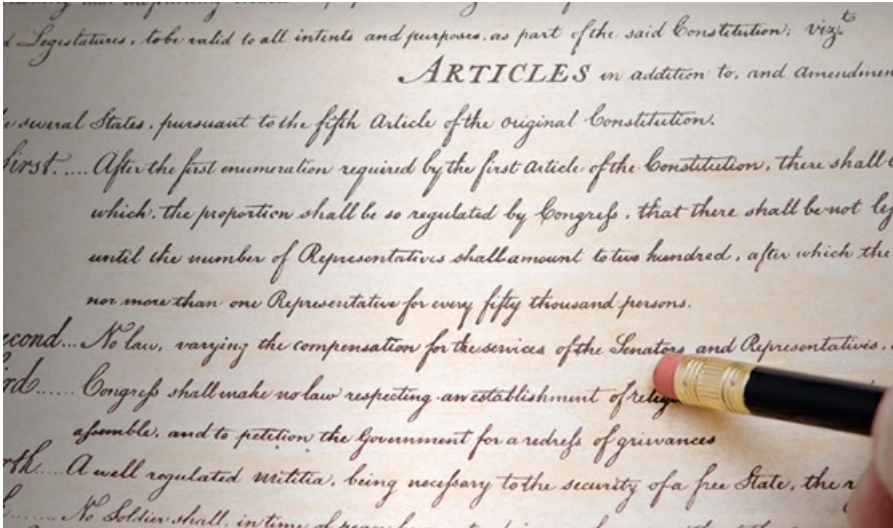 d Legislatures, to be valid to all intents and purposes, as part of the said Constitution; vizt.
ARTICLES in addition to, and amendmen
e several States, pursuant to the fifth Article of the original Constitution.
first..... After the first enumeration required by the first Article of the Constitution, there shall b
which, the proportion shall be so regulated by Congress, that there shall be not les
until the number of Representatives shall amount to two hundred, after which the
nor more than one Representative for every fifty thousand persons.
econd... No law, varying the compensation for the services of the Senators and Representatives,
ird...... Congress shall make no law respecting an establishment of relig
assemble, and to petition the Government for a redress of grievances
rth.... A well regulated militia, being necessary to the security of a free State, the r
No Soldier shall, in time of peace